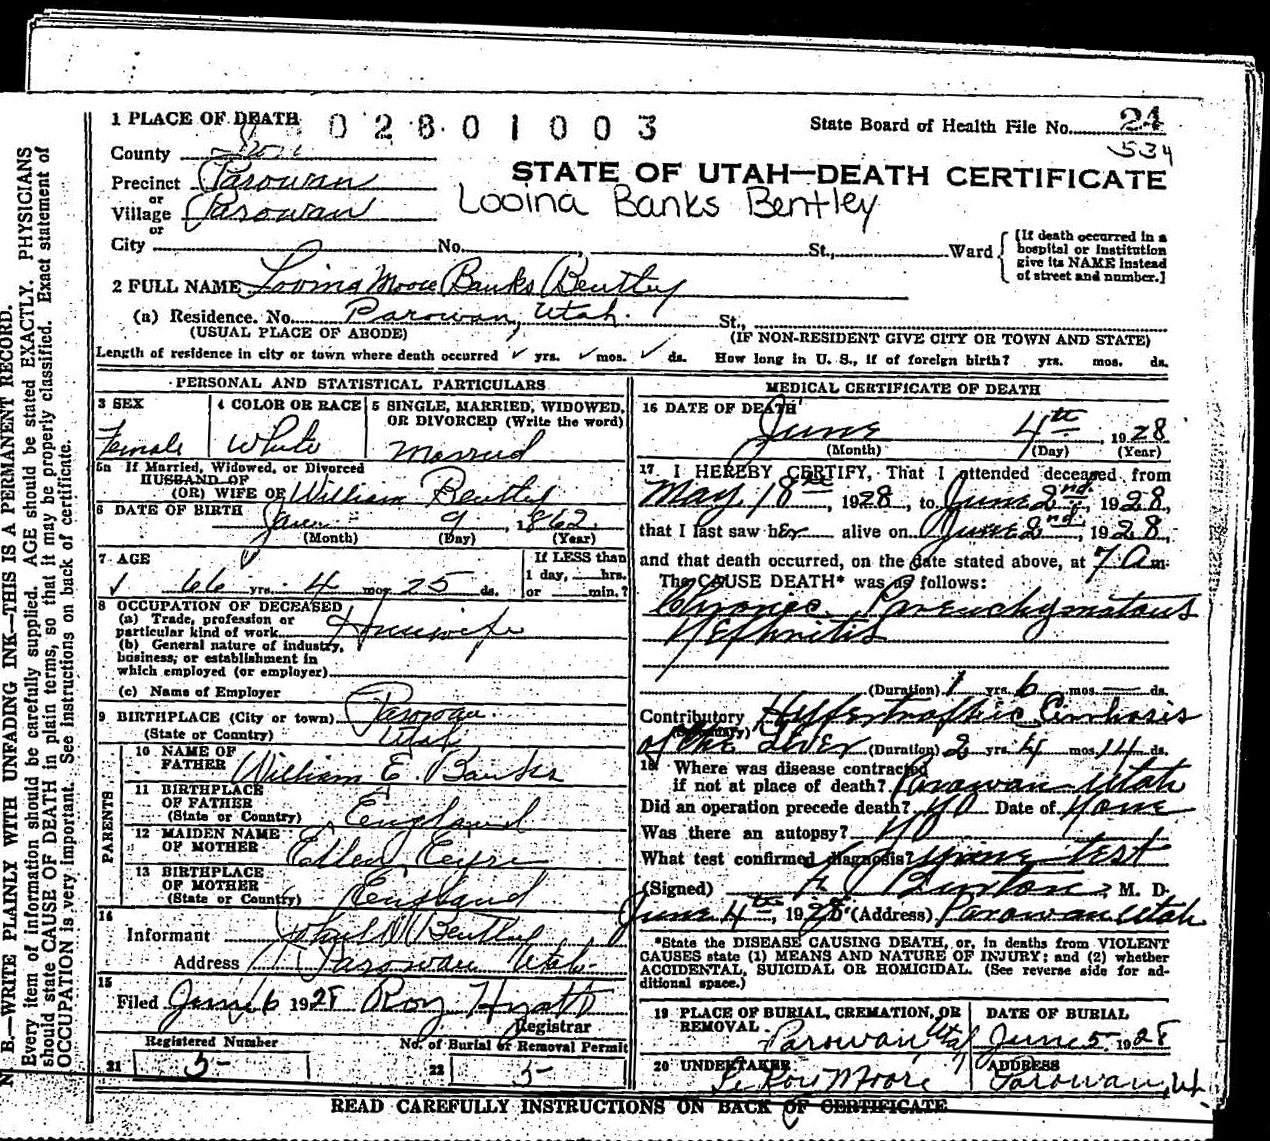 1 PLACE OF DEATH 0 2 8 0 1 0 0 3 State Board of Health File No. 24
534
County Iron
STATE OF UTAH—DEATH CERTIFICATE
Precinct Parowan
or
Looina Banks Bentley
Village Parowan
or
City No. St., Ward
[If death occurred in a
hospital or institution
give its NAME instead
of street and number.]
2 FULL NAME Lovina Moore Banks Bentley
(a) Residence. No. Parowan, Utah. St.,
(USUAL PLACE OF ABODE) (IF NON-RESIDENT GIVE CITY OR TOWN AND STATE)
Length of residence in city or town where death occurred ✓ yrs. ✓ mos. ✓ ds. How long in U. S., if of foreign birth? yrs. mos. ds.
PERSONAL AND STATISTICAL PARTICULARS
3 SEX
Female
4 COLOR OR RACE
White
5 SINGLE, MARRIED, WIDOWED,
OR DIVORCED (Write the word)
Married
5a If Married, Widowed, or Divorced
HUSBAND OF
(OR) WIFE OF William Bentley
6 DATE OF BIRTH Jan 9, 1862
(Month) (Day) (Year)
7 AGE
66 yrs. 4 mos. 25 ds.
If LESS than
1 day, hrs.
or min.?
8 OCCUPATION OF DECEASED
(a) Trade, profession or
particular kind of work Housewife
(b) General nature of industry,
business, or establishment in
which employed (or employer)
(c) Name of Employer
9 BIRTHPLACE (City or town) Parowan
(State or Country) Utah
PARENTS
10 NAME OF
FATHER William E. Banks
11 BIRTHPLACE
OF FATHER
(State or Country) England
12 MAIDEN NAME
OF MOTHER Ellen Eyre
13 BIRTHPLACE
OF MOTHER
(State or Country) England
14
Informant M Bentley
Address Parowan Utah
15
Filed June 6 1928 Roy Hyatt
Registrar
Registered Number No. of Burial or Removal Permit
21 5 22 5
MEDICAL CERTIFICATE OF DEATH
16 DATE OF DEATH
June 4th, 1928
(Month) (Day) (Year)
17 I HEREBY CERTIFY, That I attended deceased from
May 18th, 1928, to June 2nd, 1928,
that I last saw her alive on June 2nd, 1928,
and that death occurred, on the date stated above, at 7 Am.
The CAUSE DEATH* was as follows:
Chronic Parenchymatous
Nephritis
(Duration) 1 yrs. 6 mos. — ds.
Contributory Hypertrophic Cirrhosis
(Secondary)
of the Liver (Duration) 2 yrs. 4 mos. 14 ds.
18 Where was disease contracted
if not at place of death? Parowan Utah
Did an operation precede death? No Date of None
Was there an autopsy? No
What test confirmed diagnosis? Urine test
(Signed) Burton, M. D.
June 4th, 1928 (Address) Parowan Utah
*State the DISEASE CAUSING DEATH, or, in deaths from VIOLENT
CAUSES state (1) MEANS AND NATURE OF INJURY; and (2) whether
ACCIDENTAL, SUICIDAL OR HOMICIDAL. (See reverse side for ad-
ditional space.)
19 PLACE OF BURIAL, CREMATION, OR
REMOVAL
Parowan, Utah
DATE OF BURIAL
June 5, 1928
20 UNDERTAKER
Moore
ADDRESS
Parowan, Ut.
READ CAREFULLY INSTRUCTIONS ON BACK OF CERTIFICATE
N. B.—WRITE PLAINLY WITH UNFADING INK—THIS IS A PERMANENT RECORD.
Every item of information should be carefully supplied. AGE should be stated EXACTLY. PHYSICIANS
should state CAUSE OF DEATH in plain terms, so that it may be properly classified. Exact statement of
OCCUPATION is very important. See instructions on back of certificate.